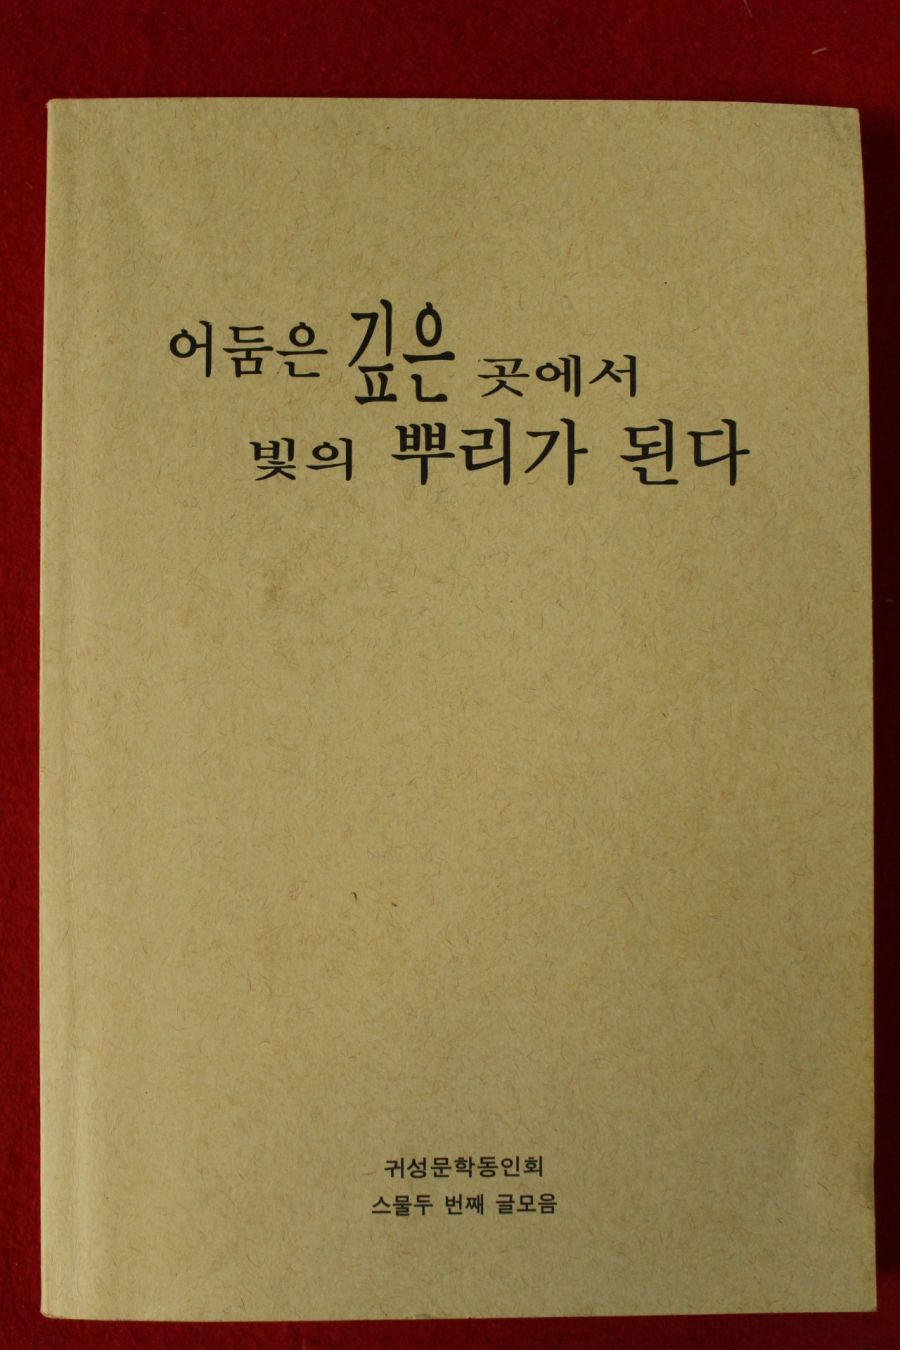 어둠은 깊은 곳에서
빛의 뿌리가 된다
귀성문학동인회
스물두 번째 글모음